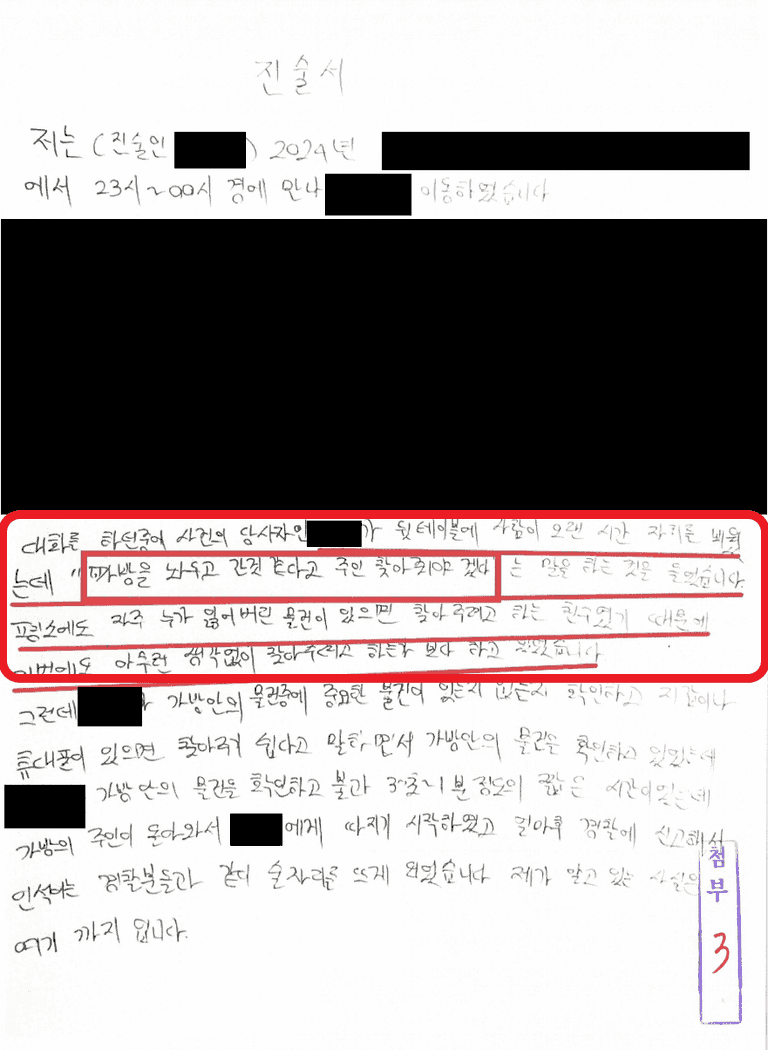 진술서
저는 (진술인 ) 2024년
에서 23시~00시 경에 만나 이동하였습니다
대화를 하던중에 사건의 당사자인 가 뒷테이블에 사람이 오랜 시간 자리를 비웠
는데 "가방을 놔두고 간것 같다고 주인 찾아줘야 겠다 는 말을 하는 것을 들었습니다
평소에도 자주 누가 잃어버린 물건이 있으면 찾아주려고 하는 친구였기 때문에
이번에도 아무런 생각없이 찾아주려고 하는가 보다 하고 있었습니다
그런데 가방안의 물건중에 중요한 물건이 있는지 없는지 확인하고 지갑이나
휴대폰이 있으면 찾아주기 쉽다고 말하면서 가방안의 물건을 확인하고 있었는데
가방안의 물건을 확인하고 불과 30초~1분 정도의 짧은 시간이었는데
가방의 주인이 돌아와서 에게 따지기 시작하였고 얼마후 경찰에 신고해서
인석이는 경찰분들과 같이 술자리를 뜨게 되었습니다 제가 알고 있는 사실은
여기 까지 입니다.
첨부
3